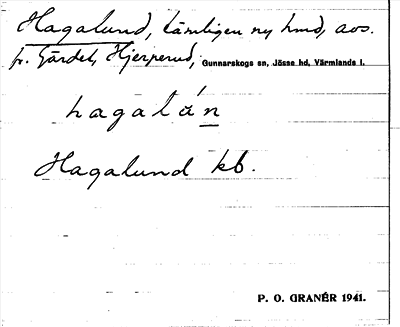 Hagalund, tämligen ny hmd, avs.
fr. Gärdet, Hjerperud, Gunnarskogs sn, Jösse hd, Värmlands l.
hagalún
Hagalund kb.
P. O. GRANÉR 1941.